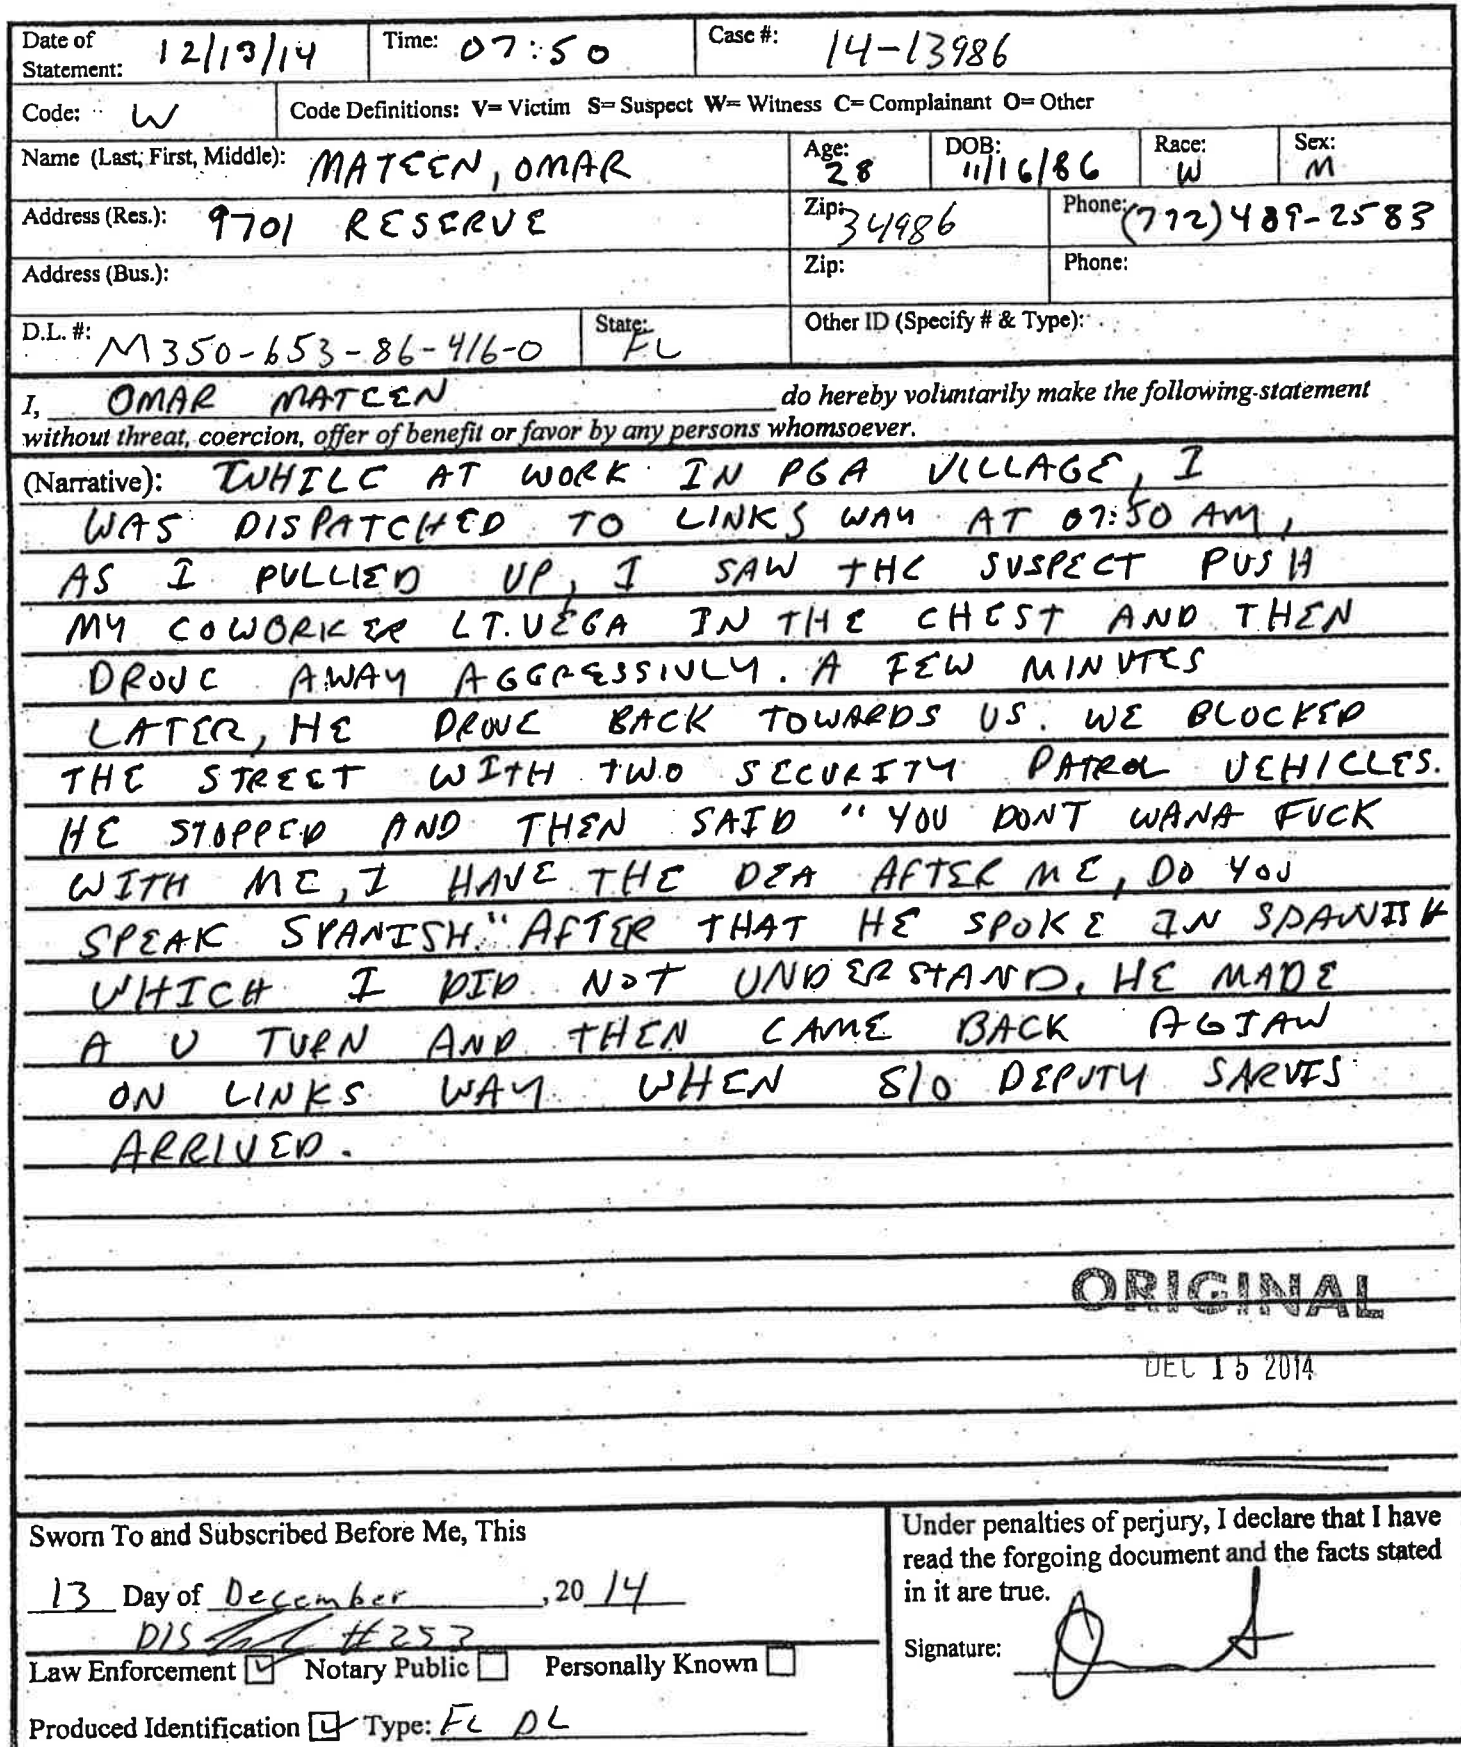 Date of Statement: 12/13/14 Time: 07:50 Case #: 14-13986
Code: W Code Definitions: V= Victim S= Suspect W= Witness C= Complainant O= Other
Name (Last, First, Middle): MATEEN, OMAR Age: 28 DOB: 11/16/86 Race: W Sex: M
Address (Res.): 9701 RESERVE Zip: 34986 Phone: (772) 489-2583
Address (Bus.): Zip: Phone:
D.L. #: M350-653-86-416-0 State: FL Other ID (Specify # & Type):
I, OMAR MATEEN do hereby voluntarily make the following statement
without threat, coercion, offer of benefit or favor by any persons whomsoever.
(Narrative): WHILE AT WORK IN PGA VILLAGE, I
WAS DISPATCHED TO LINKS WAY AT 07:50 AM,
AS I PULLIED UP, I SAW THE SUSPECT PUSH
MY COWORKER LT. VEGA IN THE CHEST AND THEN
DROVE AWAY AGGRESSIVLY. A FEW MINUTES
LATER, HE DROVE BACK TOWARDS US. WE BLOCKED
THE STREET WITH TWO SECURITY PATROL VEHICLES.
HE STOPPED AND THEN SAID "YOU DONT WANA FUCK
WITH ME, I HAVE THE DEA AFTER ME, DO YOU
SPEAK SPANISH." AFTER THAT HE SPOKE IN SPANISH
WHICH I DID NOT UNDERSTAND. HE MADE
A U TURN AND THEN CAME BACK AGIAN
ON LINKS WAY WHEN S/O DEPUTY SARVIS
ARRIVED.
ORIGINAL
DEC 15 2014
Sworn To and Subscribed Before Me, This
13 Day of December, 20 14
D/S #253
Law Enforcement Notary Public Personally Known
Produced Identification Type: FL DL
Under penalties of perjury, I declare that I have
read the forgoing document and the facts stated
in it are true.
Signature: